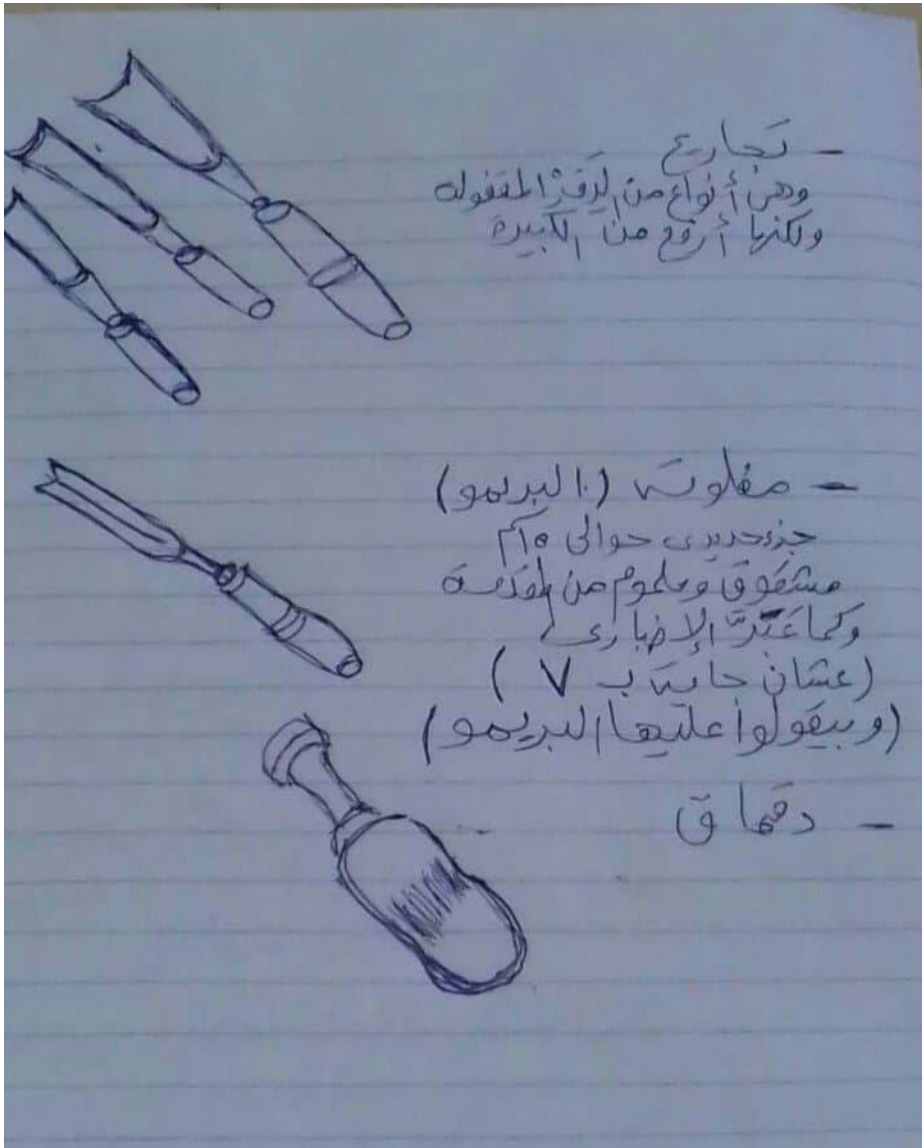 - تجاريح
وهى أنواع من الدقر المقفوله
ولكنها أرفع من الكبيرة
- مفلوته (البريمو)
جزء حديدى حوالى ١٥سم
مشقوق وملموم من المقدمة
وكما عَبَّرَ الإخبارى
(عشان جايه ب V)
(وبيقولوا عليها البريمو)
- دقماق